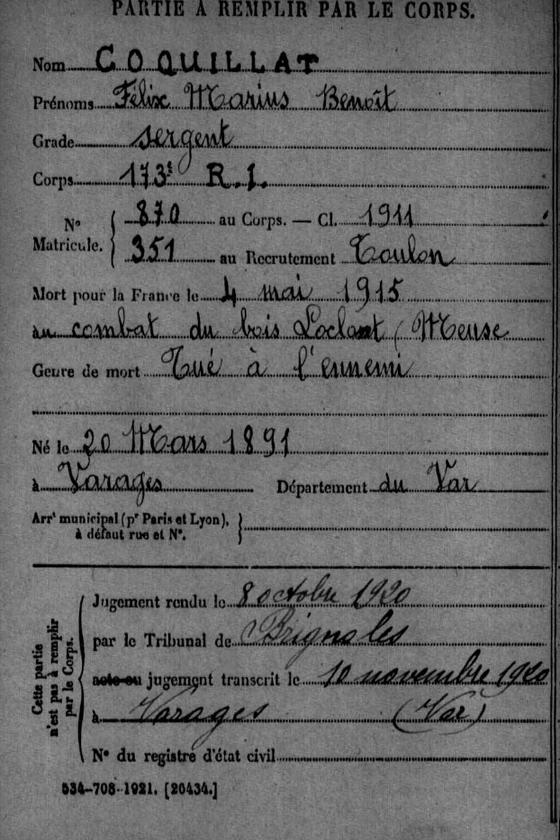 PARTIE À REMPLIR PAR LE CORPS.
Nom COQUILLAT
Prénoms Félix Marius Benoît
Grade sergent
Corps 173e R.I.
N° Matricule. { 870 au Corps. — Cl. 1911
351 au Recrutement Toulon
Mort pour la France le 4 mai 1915
au combat du bois Loclont (Meuse
Genre de mort Tué à l'ennemi
Né le 20 Mars 1891
à Varages Département du Var
Arrt municipal (pr Paris et Lyon), }
à défaut rue et N°.
Cette partie n'est pas à remplir par le Corps.
Jugement rendu le 8 octobre 1920
par le Tribunal de Brignoles
acte ou jugement transcrit le 10 novembre 1920
à Varages (Var)
N° du registre d'état civil
534-708-1921. [20434.]